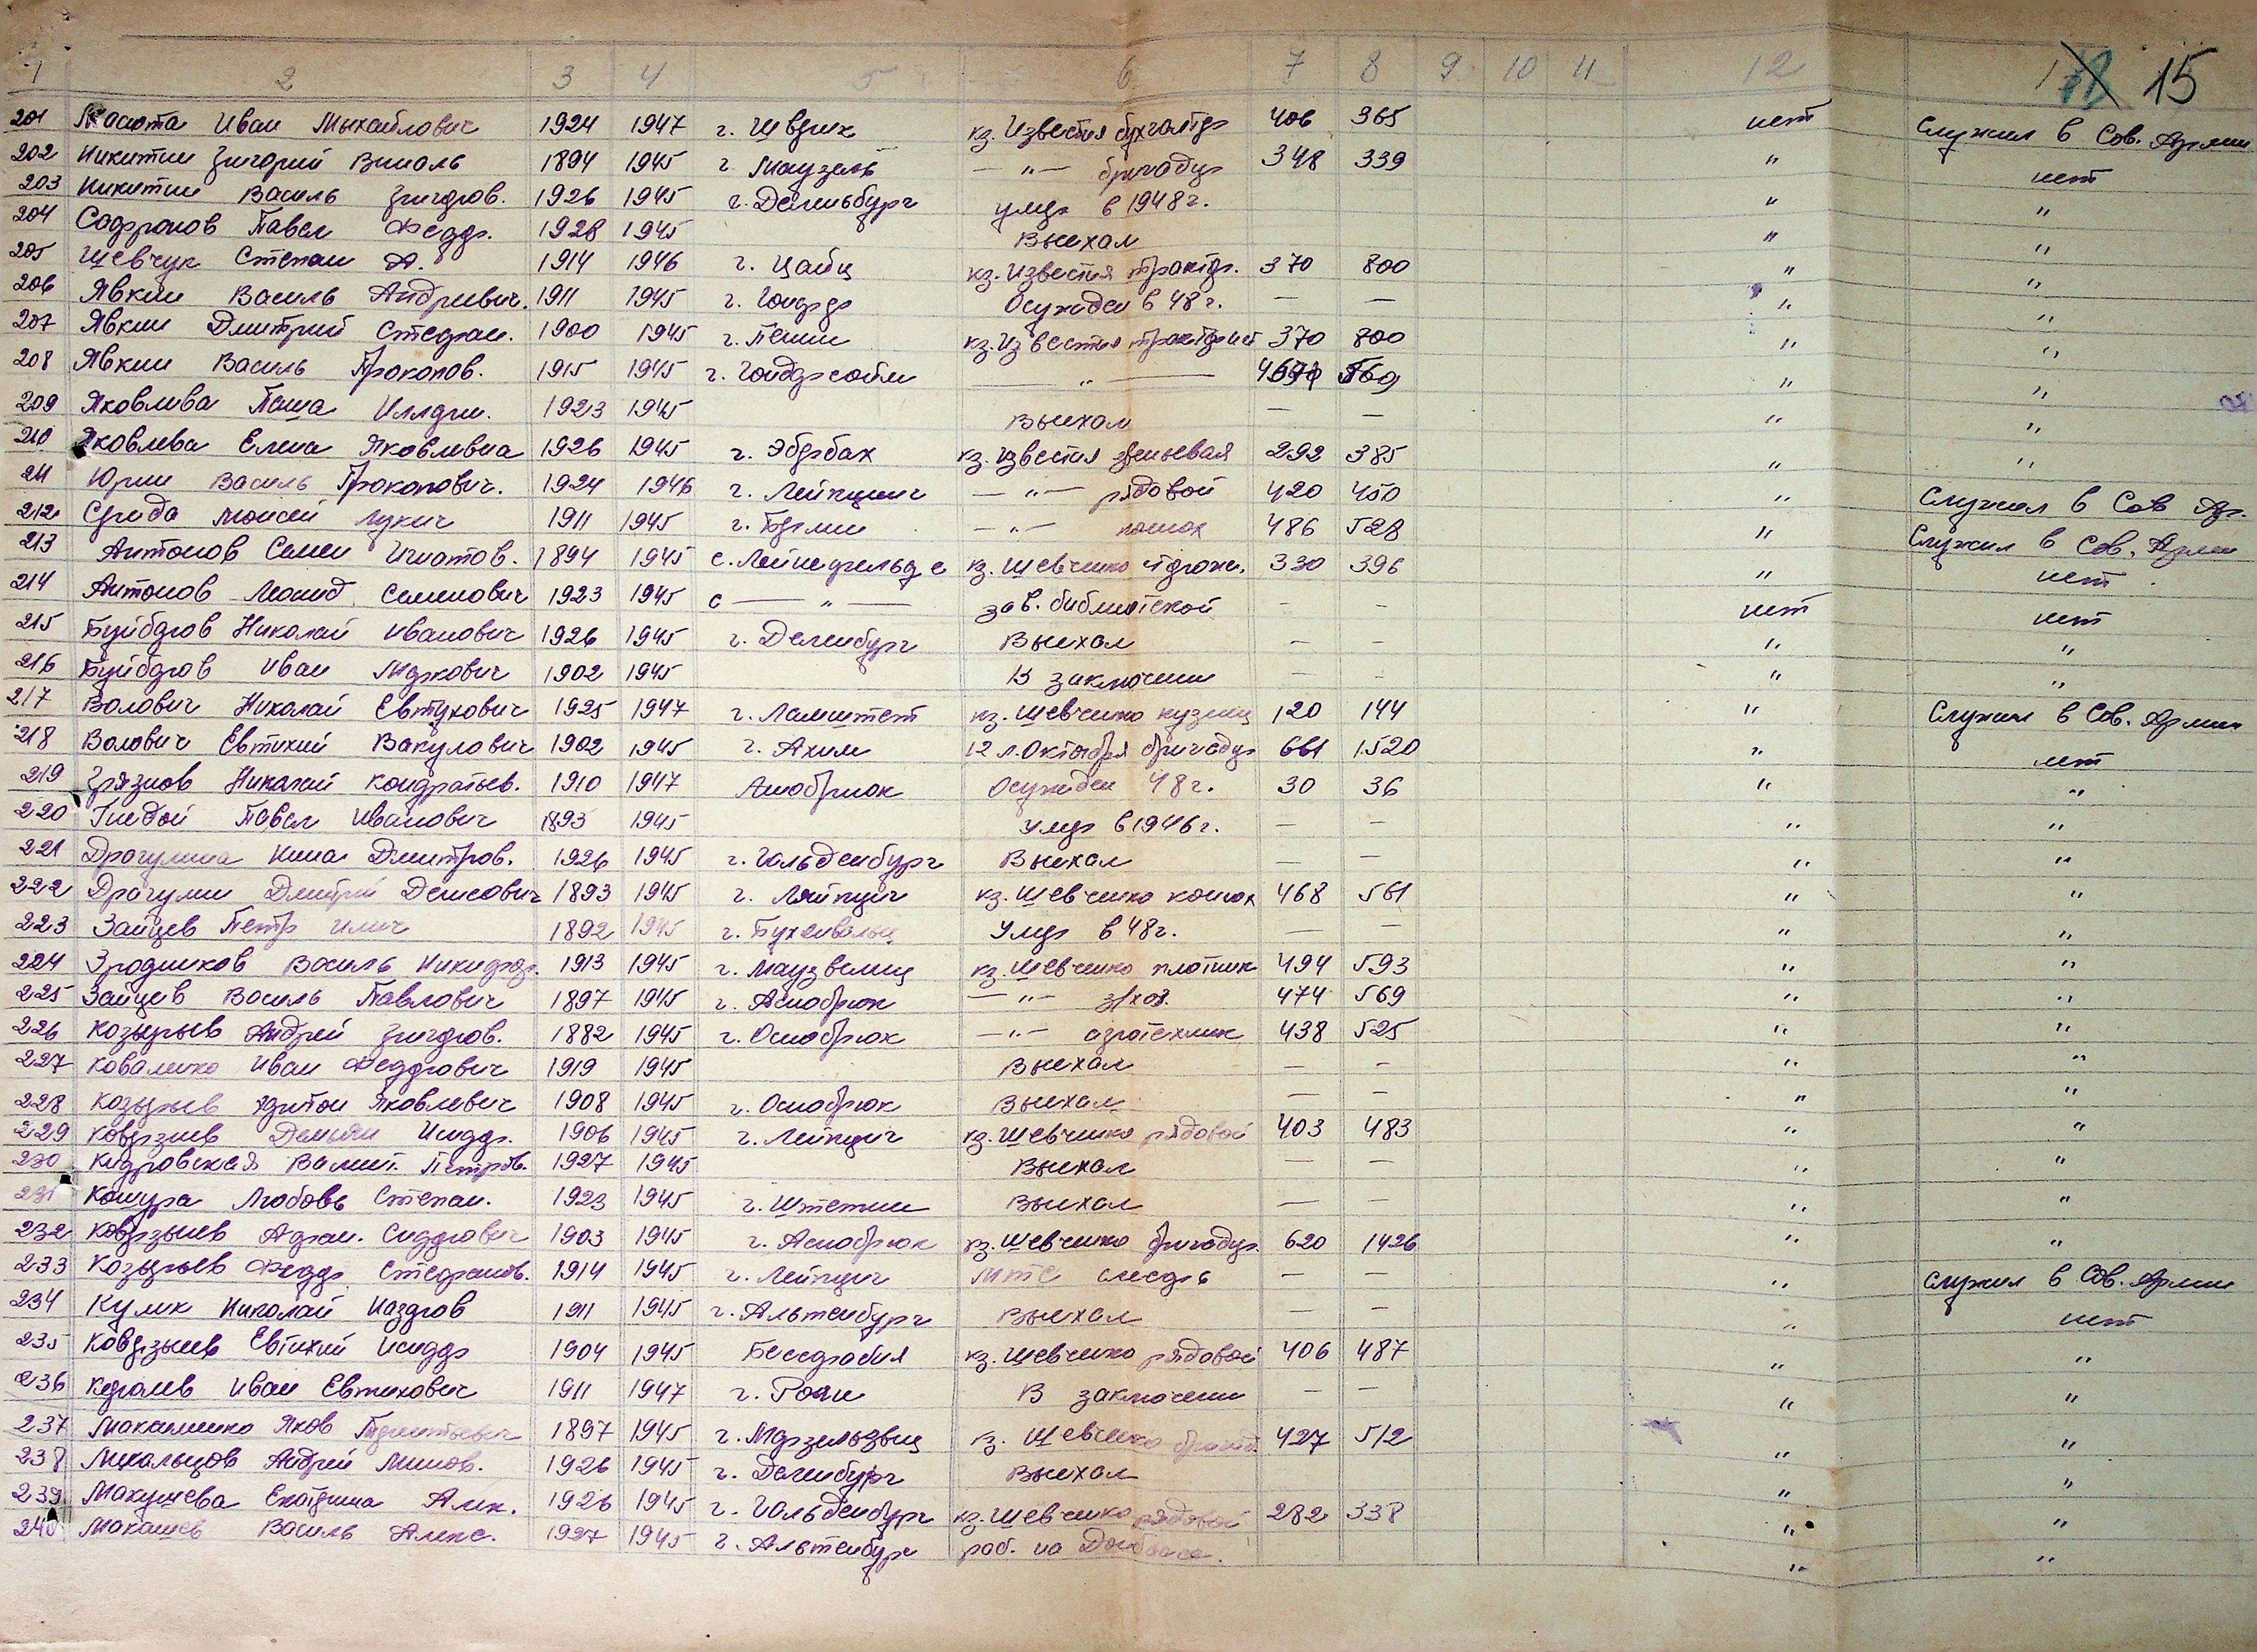 1 2 3 4 5 6 7 8 9 10 11 12 15
201 Иван Михайлович 1924 1947 г. кз. Известия бухгалтер 406 365 нет Служил в Сов. Армии
202 Никитин Григорий 1894 1945 г. Маузель — " — бригадир 348 339 " нет
203 Никитин Василь Григоров. 1926 1945 г. Деменьбург умер в 1948 г. " "
204 Софронов Павел Федор. 1928 1945 Выехал " "
205 Шевчук Степан А. 1914 1946 г. Цайц кз. Известия трактор. 370 800 " "
206 Явкин Василь Андреевич. 1911 1945 г. Осужден в 48 г. — — " "
207 Явкин Дмитрий Стефан. 1900 1945 г. кз. Известия тракторист 370 800 " "
208 Явкин Василь Прокопов. 1915 1945 г. — " — " "
209 Яковлива Паша 1923 1945 Выехал — — " "
210 Яковлева Елена Яковлевна 1926 1945 г. Эбербах кз. Известия звеньевая 292 385 " "
211 Юрин Василь Прокопович. 1924 1946 г. Лейпциг — " — рядовой 420 450 " Служил в Сов Ар.
212 Середа Моисей Лукич 1911 1945 г. Берлин — " — конюх 486 528 " Служил в Сов. Армии
213 Антонов Семен Игнатов. 1894 1945 с. Лейнефельде кз. Шевченко 330 396 " нет
214 Антонов Леонид Семенович 1923 1945 с — " — зав. библиотекой – – нет нет
215 Буйборов Николай Иванович 1926 1945 г. Деменбург Выехал — — " "
216 Буйборов Иван Маркович 1902 1945 В заключении — – " "
217 Волович Николай Евтухович 1925 1947 г. Ламштет кз. Шевченко кузнец 120 144 " Служил в Сов. Армии
218 Волович Евтихий Вакулович 1902 1945 г. Ахим 12 л. Октября бригадир 661 1520 " нет
219 Грязнов Николай Кондратьев. 1910 1947 Аснобрюк Осужден 48 г. 30 36 " "
220 Гнедой Павел Иванович 1893 1945 Умер в 1946 г. — — " "
221 Драгулина Нина Дмитров. 1926 1945 г. Гольденбург Выехал — — " "
222 Драгулин Дмитрий Денисович 1893 1945 г. Ляйпциг кз. Шевченко конюх 468 561 " "
223 Зайцев Петр Илич 1892 1945 г. Бухенвальц Умер в 48 г. — — " "
224 Зродников Василь Никифор. 1913 1945 г. Маузвениц кз. Шевченко плотник 494 593 " "
225 Зайцев Василь Павлович 1897 1945 г. Аснобрюк — " — з/хоз. 474 569 " "
226 Козырев Андрей Григоров. 1882 1945 г. Оснобрюк — " — агротехник 438 525 " "
227 Коваленко Иван Федорович 1919 1945 Выехал — – " "
228 Козырев Харитон Яковлевич 1908 1945 г. Оснобрюк Выехал — – " "
229 Коверзнев Демьян Исидор. 1906 1945 г. Лейпциг кз. Шевченко рядовой 403 483 " "
230 Кидровская Валент. Петров. 1927 1945 Выехал — — " "
231 Кошура Любовь Степан. 1923 1945 г. Штетин Выехал — — " "
232 Коверзнев Афан. Сидорович 1903 1945 г. Аснобрюк кз. Шевченко бригадир. 620 1426 " "
233 Козырев Федор Стефанов. 1914 1945 г. Лейпциг МТС слесарь — — " Служил в Сов. Армии
234 Кулик Николай Назаров 1911 1945 г. Альтенбург Выехал — — " нет
235 Коверзнев Евтихий Исидор 1904 1945 Бессарабия кз. Шевченко рядовой 406 487 " "
236 Королев Иван Евтихович 1911 1947 г. В заключении — – " "
237 Макаленко Яков 1897 1945 г. Мерзельвиц кз. Шевченко 427 512 " "
238 Михальцов Андрей 1926 1945 г. Деленбург Выехал " "
239 Макушева Екатерина Алек. 1926 1945 г. Гольденбург кз. Шевченко рядовой 282 338 " "
240 Макашев Василь Алекс. 1927 1945 г. Альтенбург раб. на Донбасе. " "